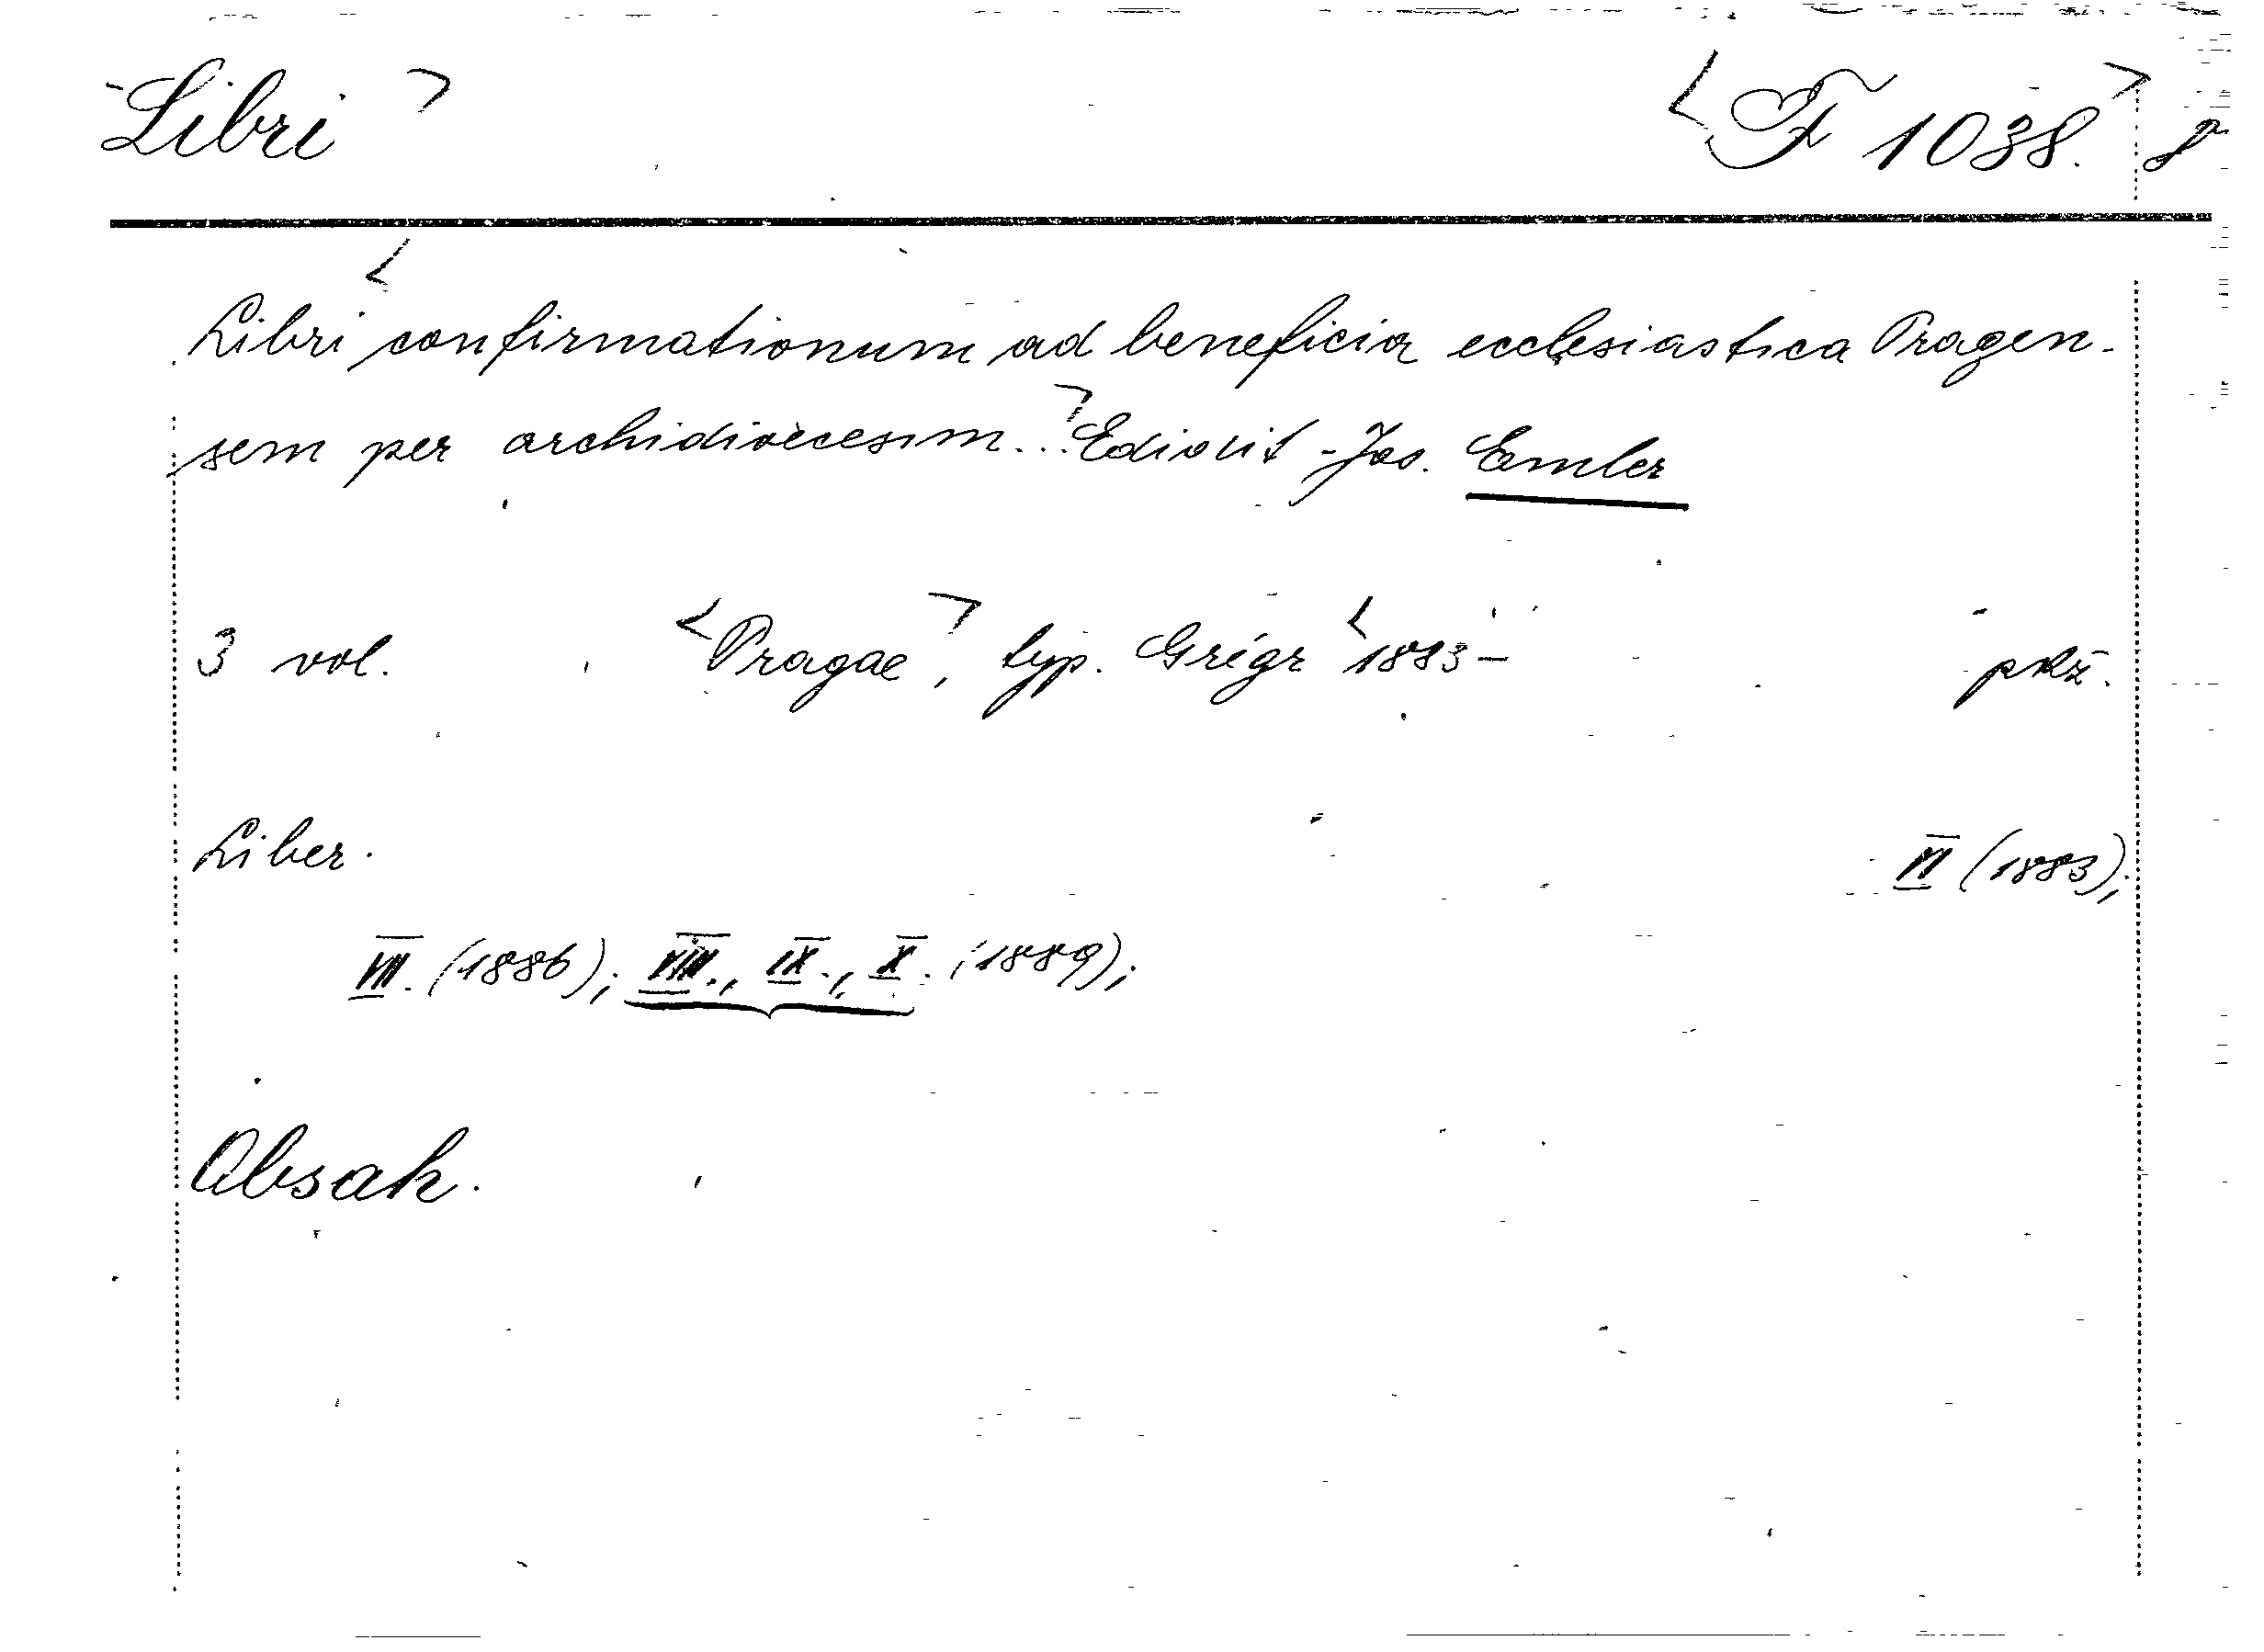 Libri F 1038.
Libri confirmationum ad beneficia ecclesiastica Pragen-
sem per archidioecesim... Edidit Jos. Emler
3 vol. Pragae, typ. Grégr 1883- pkž.
Liber. VI (1883);
VII. (1886); VIII., IX., X. (1889);
Obsah.